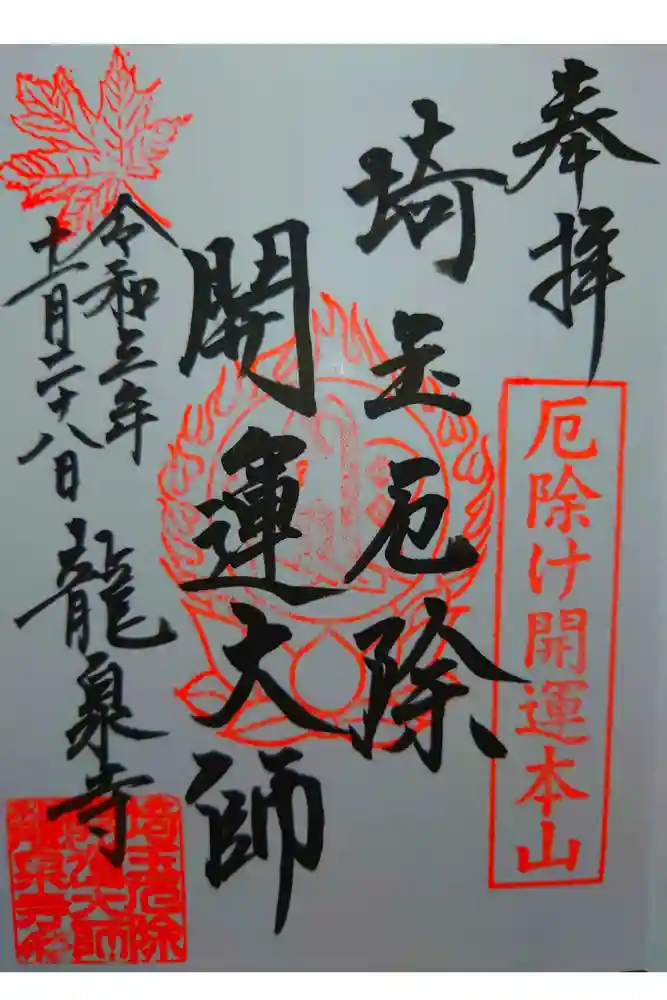 奉拝
厄除け開運本山
埼玉厄除
開運大師
令和三年
十一月二十八日
龍泉寺
埼玉厄除
開運大師
龍泉寺